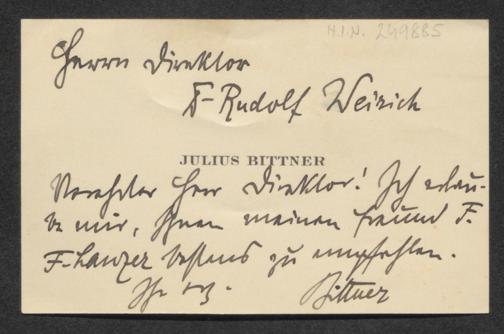 H.I.N. 249885
Herrn Direktor
Dr Rudolf Weirich
JULIUS BITTNER
Verehrter Herr Direktor! Ich erlau-
be mir, Ihnen meinen Freund
bestens zu empfehlen.
Ihr erg.
Bittner